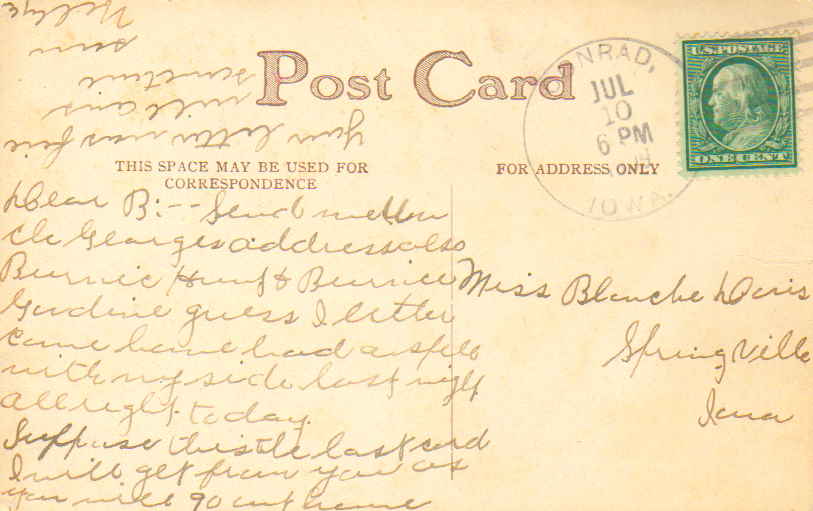 Post Card
CONRAD,
JUL
10
6 PM
IOWA.
U.S. POSTAGE
ONE CENT
THIS SPACE MAY BE USED FOR
CORRESPONDENCE
FOR ADDRESS ONLY
Dear B:-- Send me
Georges address also
Burnie & Burnice
guess I better
come home had a spell
with my side last night
all right today.
Suppose this is the last card
I will get from you as
you will go home
your letter was fine
will ans
sometime
soon
Nellye
Miss Blanche Davis
Springville
Iowa